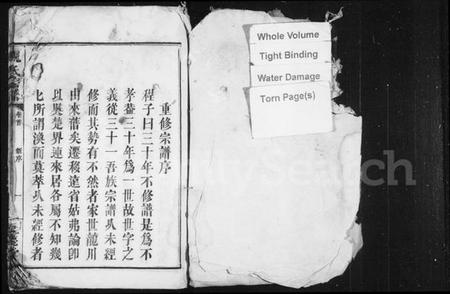 重修宗譜序
程子曰三十年不修譜是爲不
孝蓋三十年爲一世故世字之
義從三十一吾族宗譜久未經
修而其勢有不然者家世龍川
由來舊矣遷移遠省姑弗論卽
以興楚界連來居各屬不知幾
所謂渙而莫萃久未經修者
卷首
序
Whole Volume
Tight Binding
Water Damage
Torn Page(s)